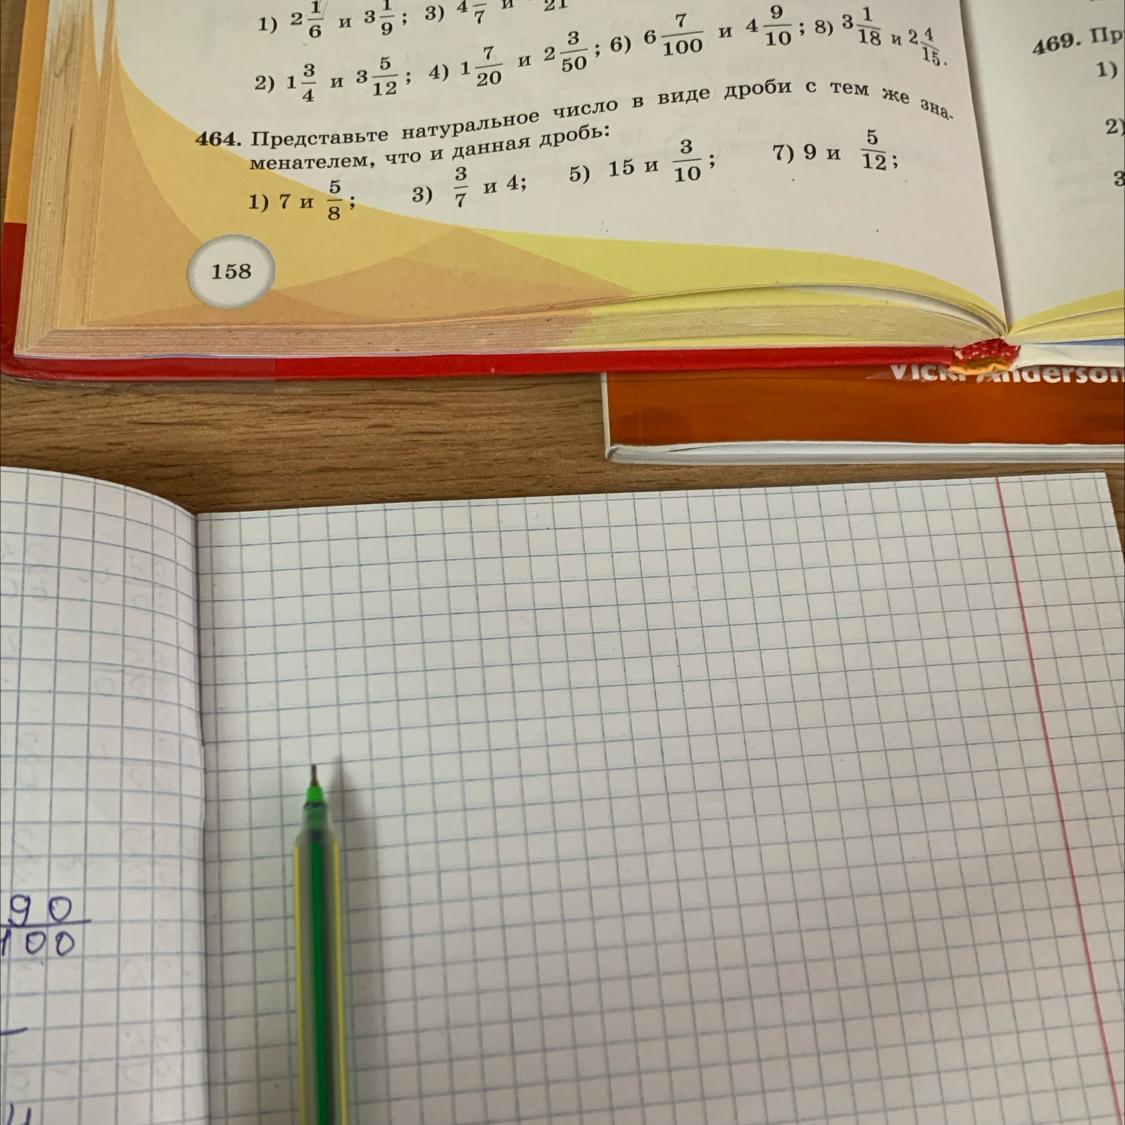 1) 2 1/6 и 3 1/9; 3) 4 /7 и 21
2) 1 3/4 и 3 5/12; 4) 1 7/20 и 2 3/50; 6) 6 7/100 и 4 9/10; 8) 3 1/18 и 2 4/15.
464. Представьте натуральное число в виде дроби с тем же зна-
менателем, что и данная дробь:
1) 7 и 5/8; 3) 3/7 и 4; 5) 15 и 3/10; 7) 9 и 5/12;
158
469. Пр
1)
2)
3
Vicki Anderson
90
100